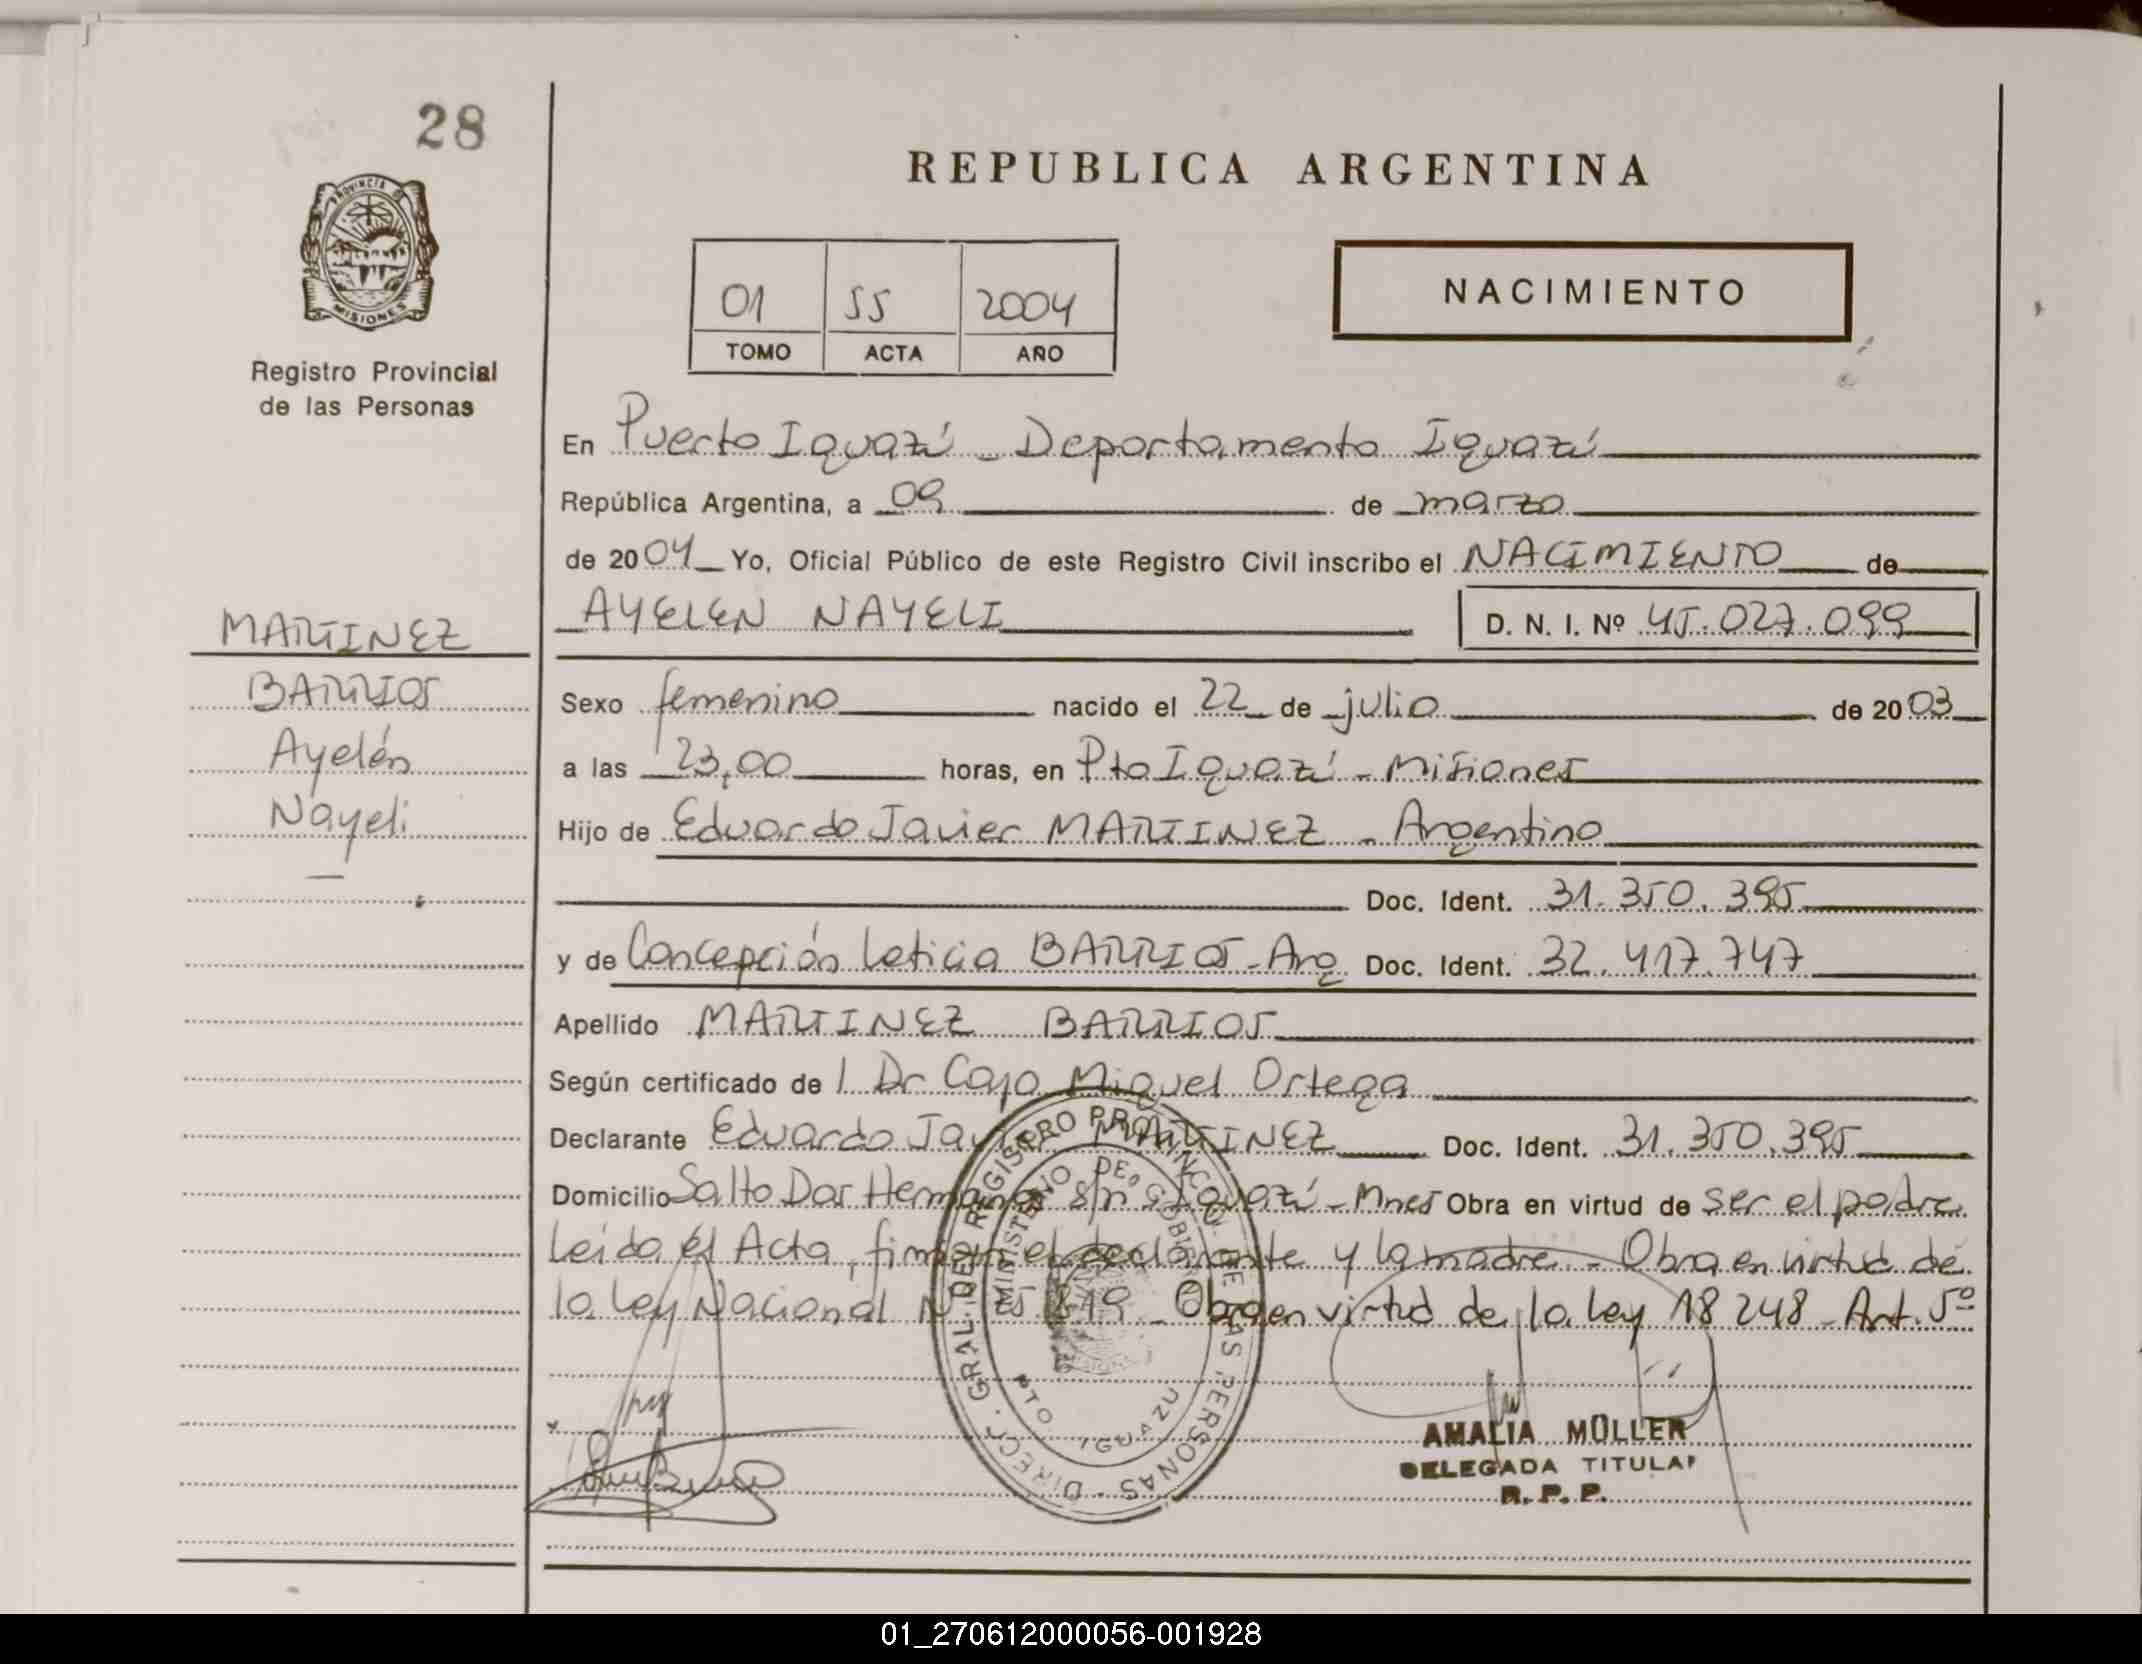 28
PROVINCIA DE
MISIONES
Registro Provincial
de las Personas
REPUBLICA ARGENTINA
01 55 2004
TOMO ACTA AÑO
NACIMIENTO
En Puerto Iguazú - Departamento Iguazú
República Argentina, a 09 de marzo
de 2004 Yo, Oficial Público de este Registro Civil inscribo el NACIMIENTO de
AYELEN NAYELI D. N. I. Nº 45.027.099
MARTINEZ
BARRIOS
Ayelén
Nayeli
Sexo femenino nacido el 22 de julio de 2003
a las 23,00 horas, en Pto Iguazú - Misiones
Hijo de Eduardo Javier MARTINEZ - Argentino
Doc. Ident. 31.350.395
y de Concepción Leticia BARRIOS - Arg Doc. Ident. 32.417.747
Apellido MARTINEZ BARRIOS
Según certificado de l Dr Cayo Miguel Ortega
Declarante Eduardo Javier MARTINEZ Doc. Ident. 31.350.395
Domicilio Salto Dos Hermanas s/n Iguazú - Mnes Obra en virtud de ser el padre
Leída el Acta, firman el declarante y la madre - Obra en virtud de
la Ley Nacional N 25 819 - Obra en virtud de la Ley 18 248 - Art. 5º
DIRECC. GRAL. DEL REGISTRO PROVINCIAL DE LAS PERSONAS
MINISTERIO DE GOBIERNO
PTO IGUAZU
AMALIA MÜLLER
DELEGADA TITULAR
R. P. P.
01_270612000056-001928